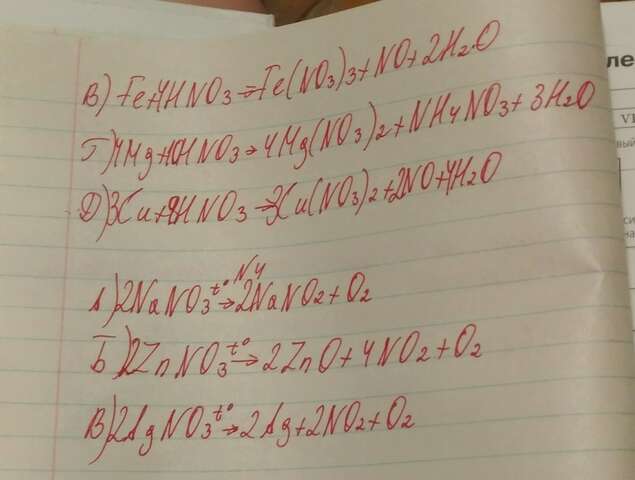 В) Fe+4HNO3→Fe(NO3)3+NO+2H2O
Г) 4Mg+10HNO3→4Mg(NO3)2+NH4NO3+3H2O
Д) 3Cu+8HNO3→3Cu(NO3)2+2NO+4H2O
N4
А) 2NaNO3 t°→ 2NaNO2+O2
Б) 2ZnNO3 t°→ 2ZnO+4NO2+O2
В) 2AgNO3 t°→ 2Ag+2NO2+O2